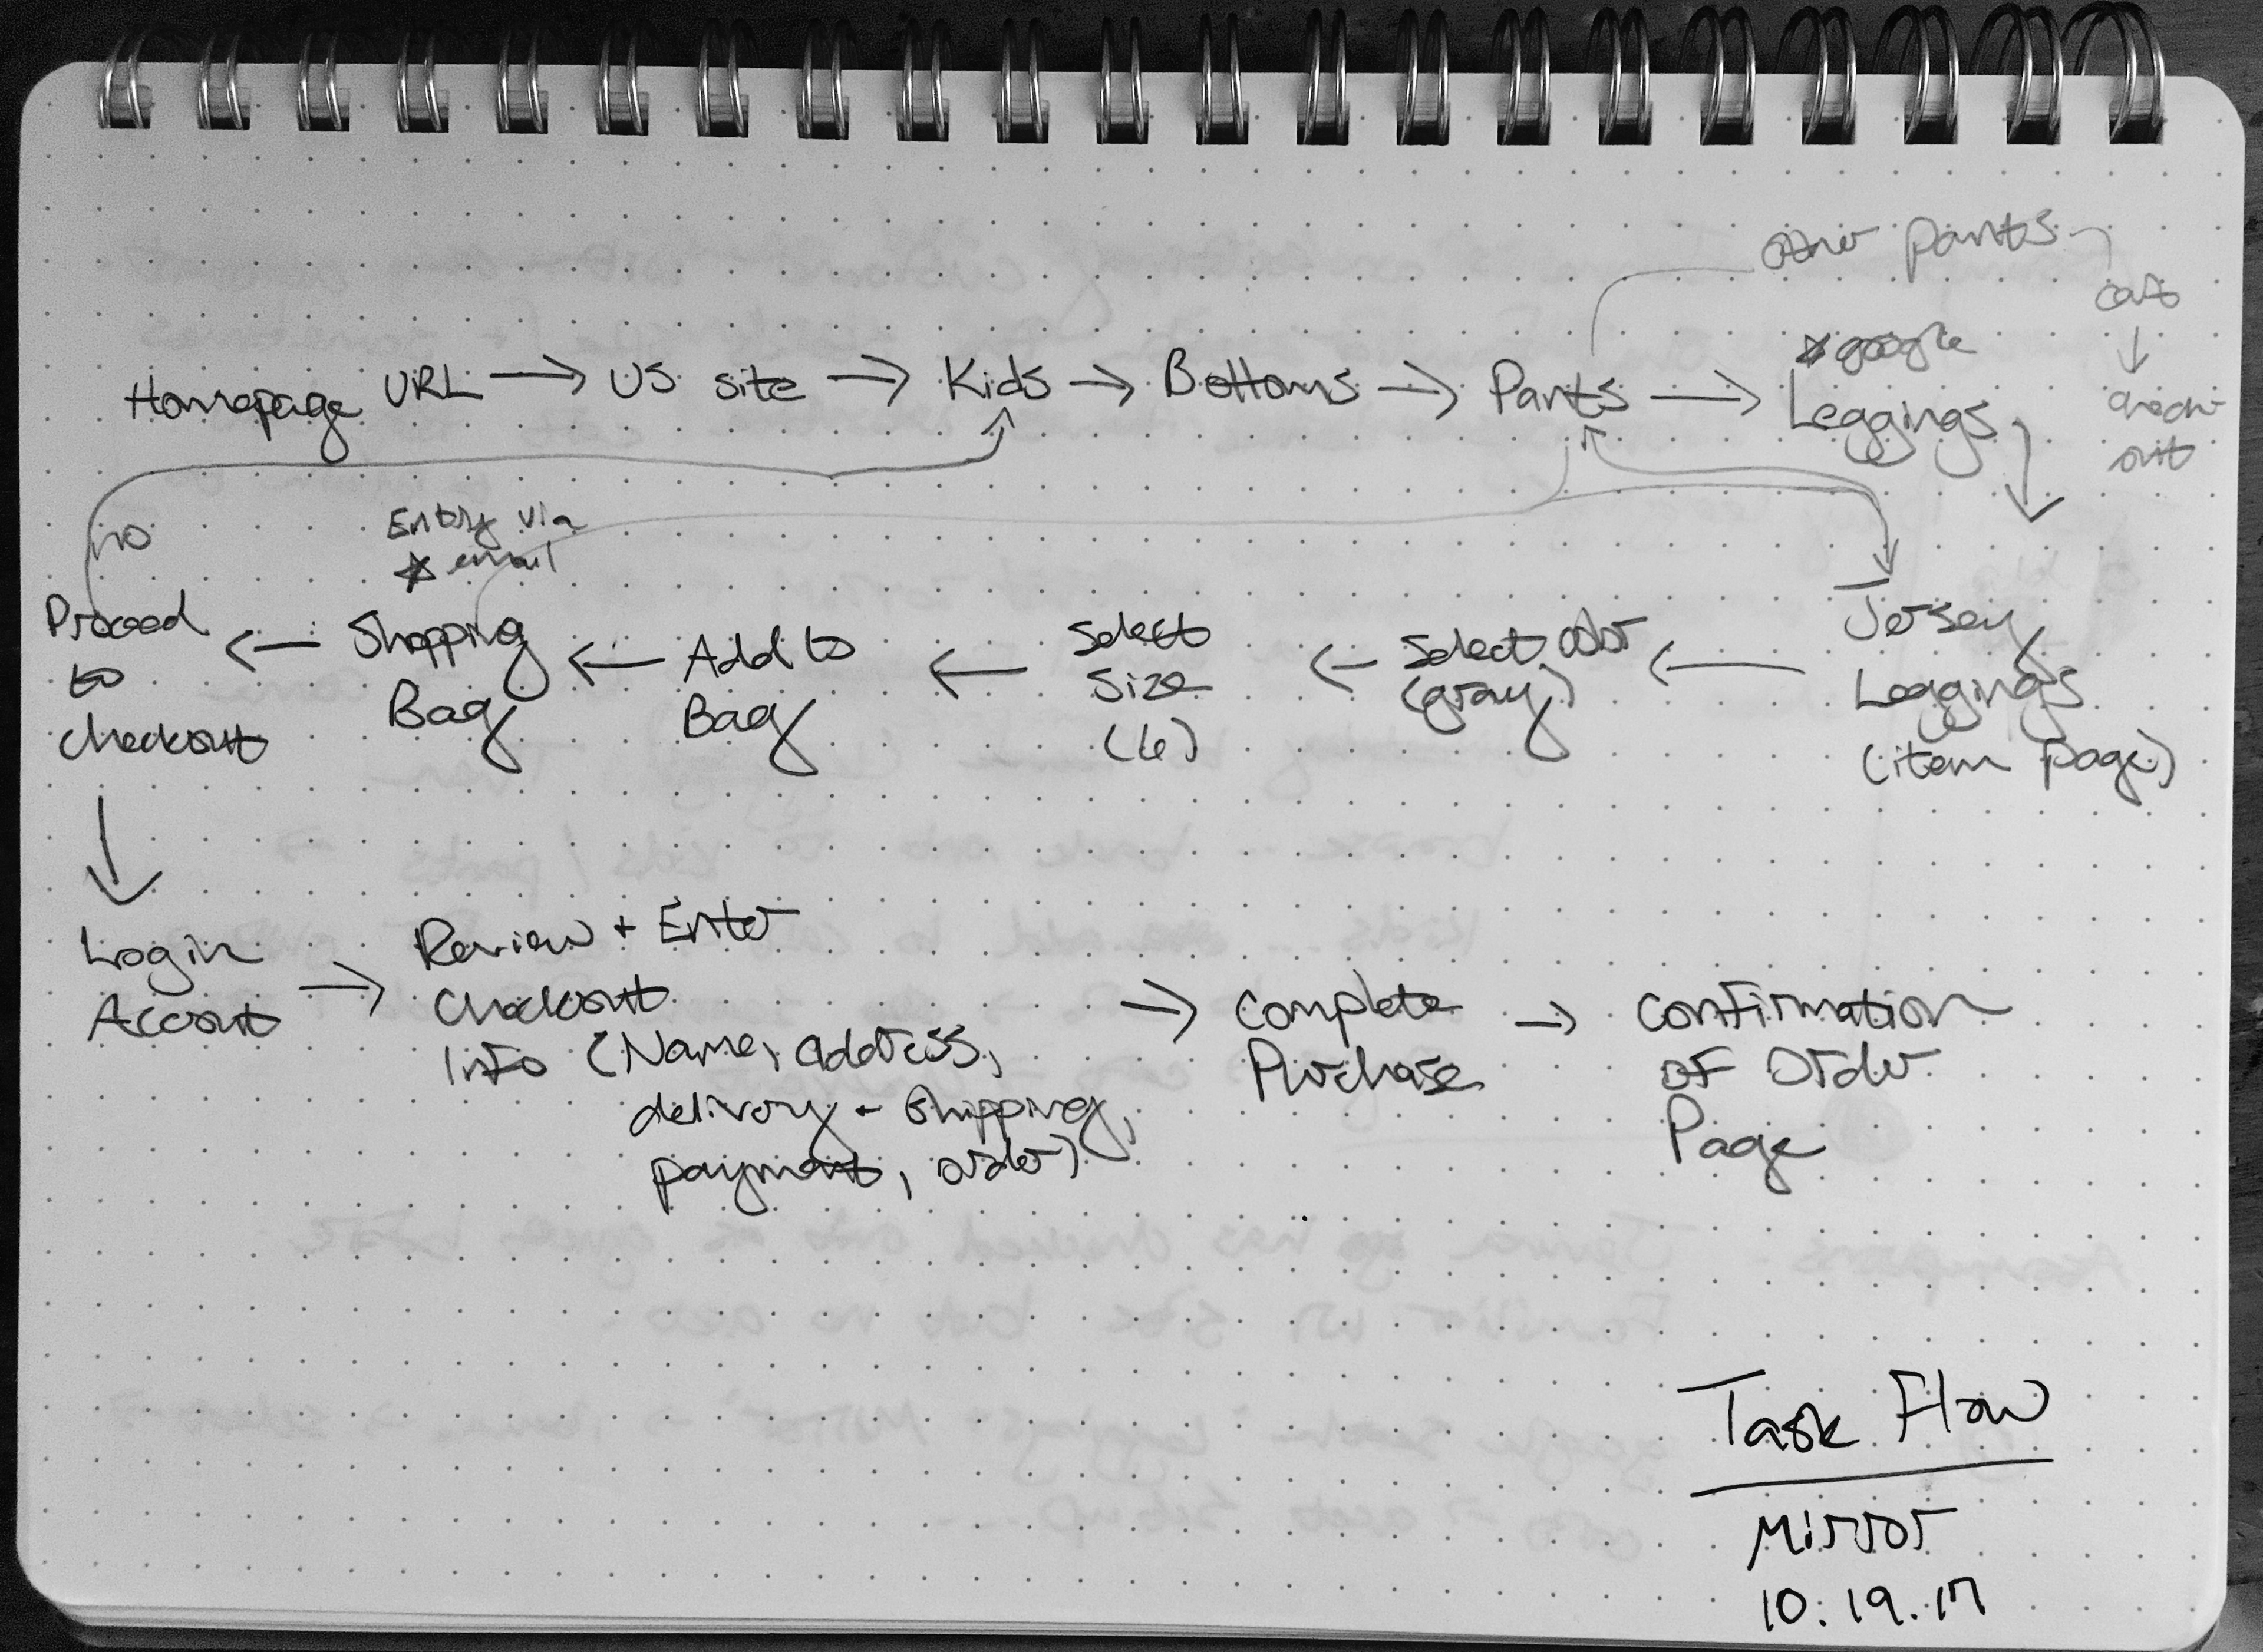 other pants
cart
↓
check
out
Homepage URL → US site → Kids → Bottoms → Pants → Leggings
☆ google
no
Entry via
☆ email
Proceed
to
checkout
← Shopping
Bag
← Add to
Bag
← Select
Size
(6)
← Select color
(gray)
← Jersey
Leggings
(item page)
Login
Account
→ Review + Enter
Checkout
Info (Name, address,
delivery + shipping,
payment, order)
→ Complete
Purchase
→ Confirmation
of Order
Page
Task Flow
Mirror
10.19.17